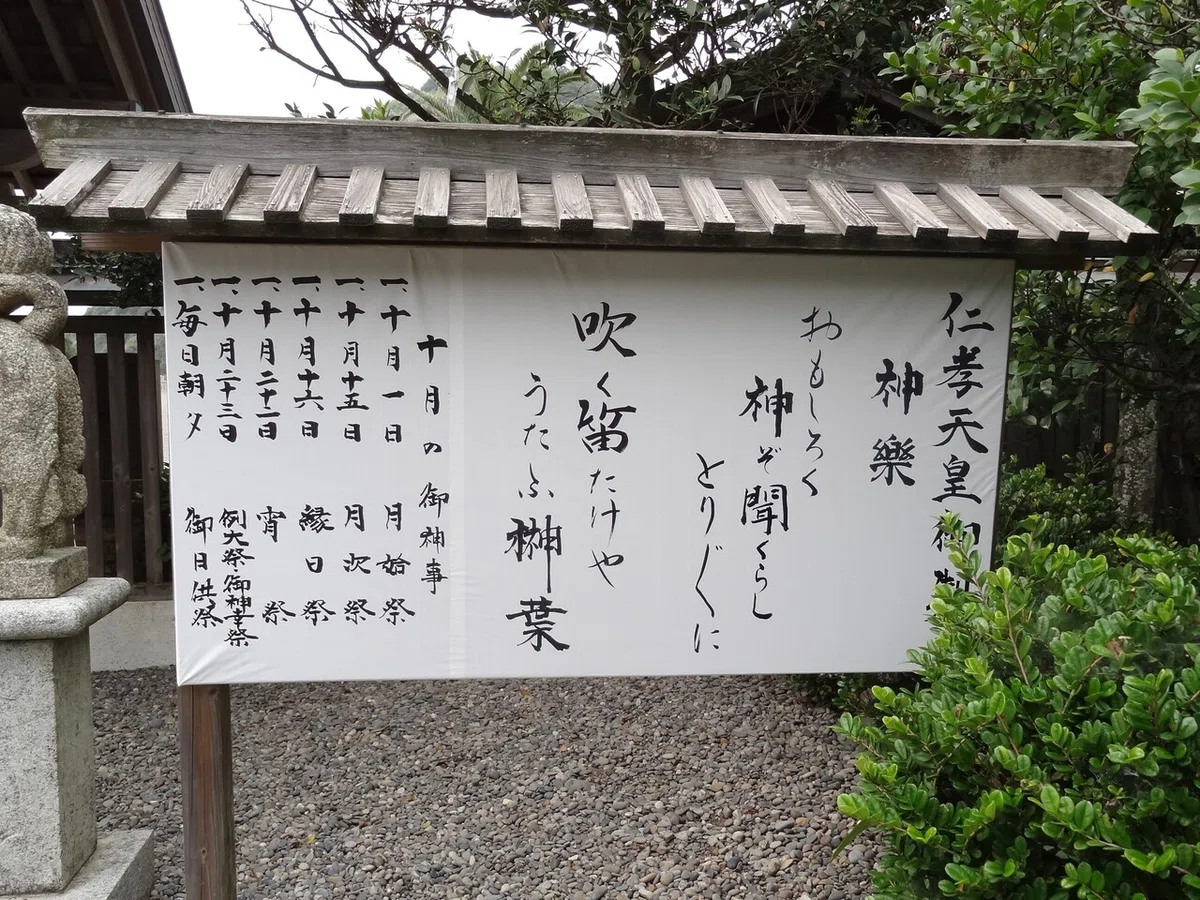 仁孝天皇御製
神樂
おもしろく
神ぞ聞くらし
とり〴〵に
吹く笛たけや
うたふ榊葉
十月の御神事
一、十月一日 月始祭
一、十月十五日 月次祭
一、十月十六日 縁日祭
一、十月二十二日 宵祭
一、十月二十三日 例大祭・御神幸祭
一、毎日朝夕 御日供祭